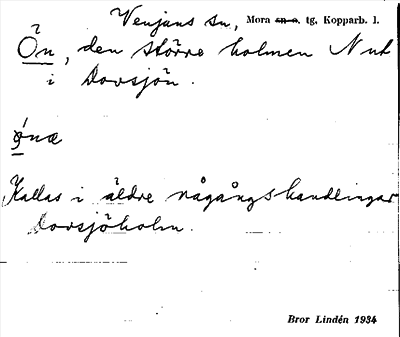 Venjans sn, Mora sn o. tg. Kopparb. l.
Ön, den större holmen N ut
i Dovsjön.
ǫ́næ
Kallas i äldre rågångshandlingar
Dovsjöholm.
Bror Lindén 1934